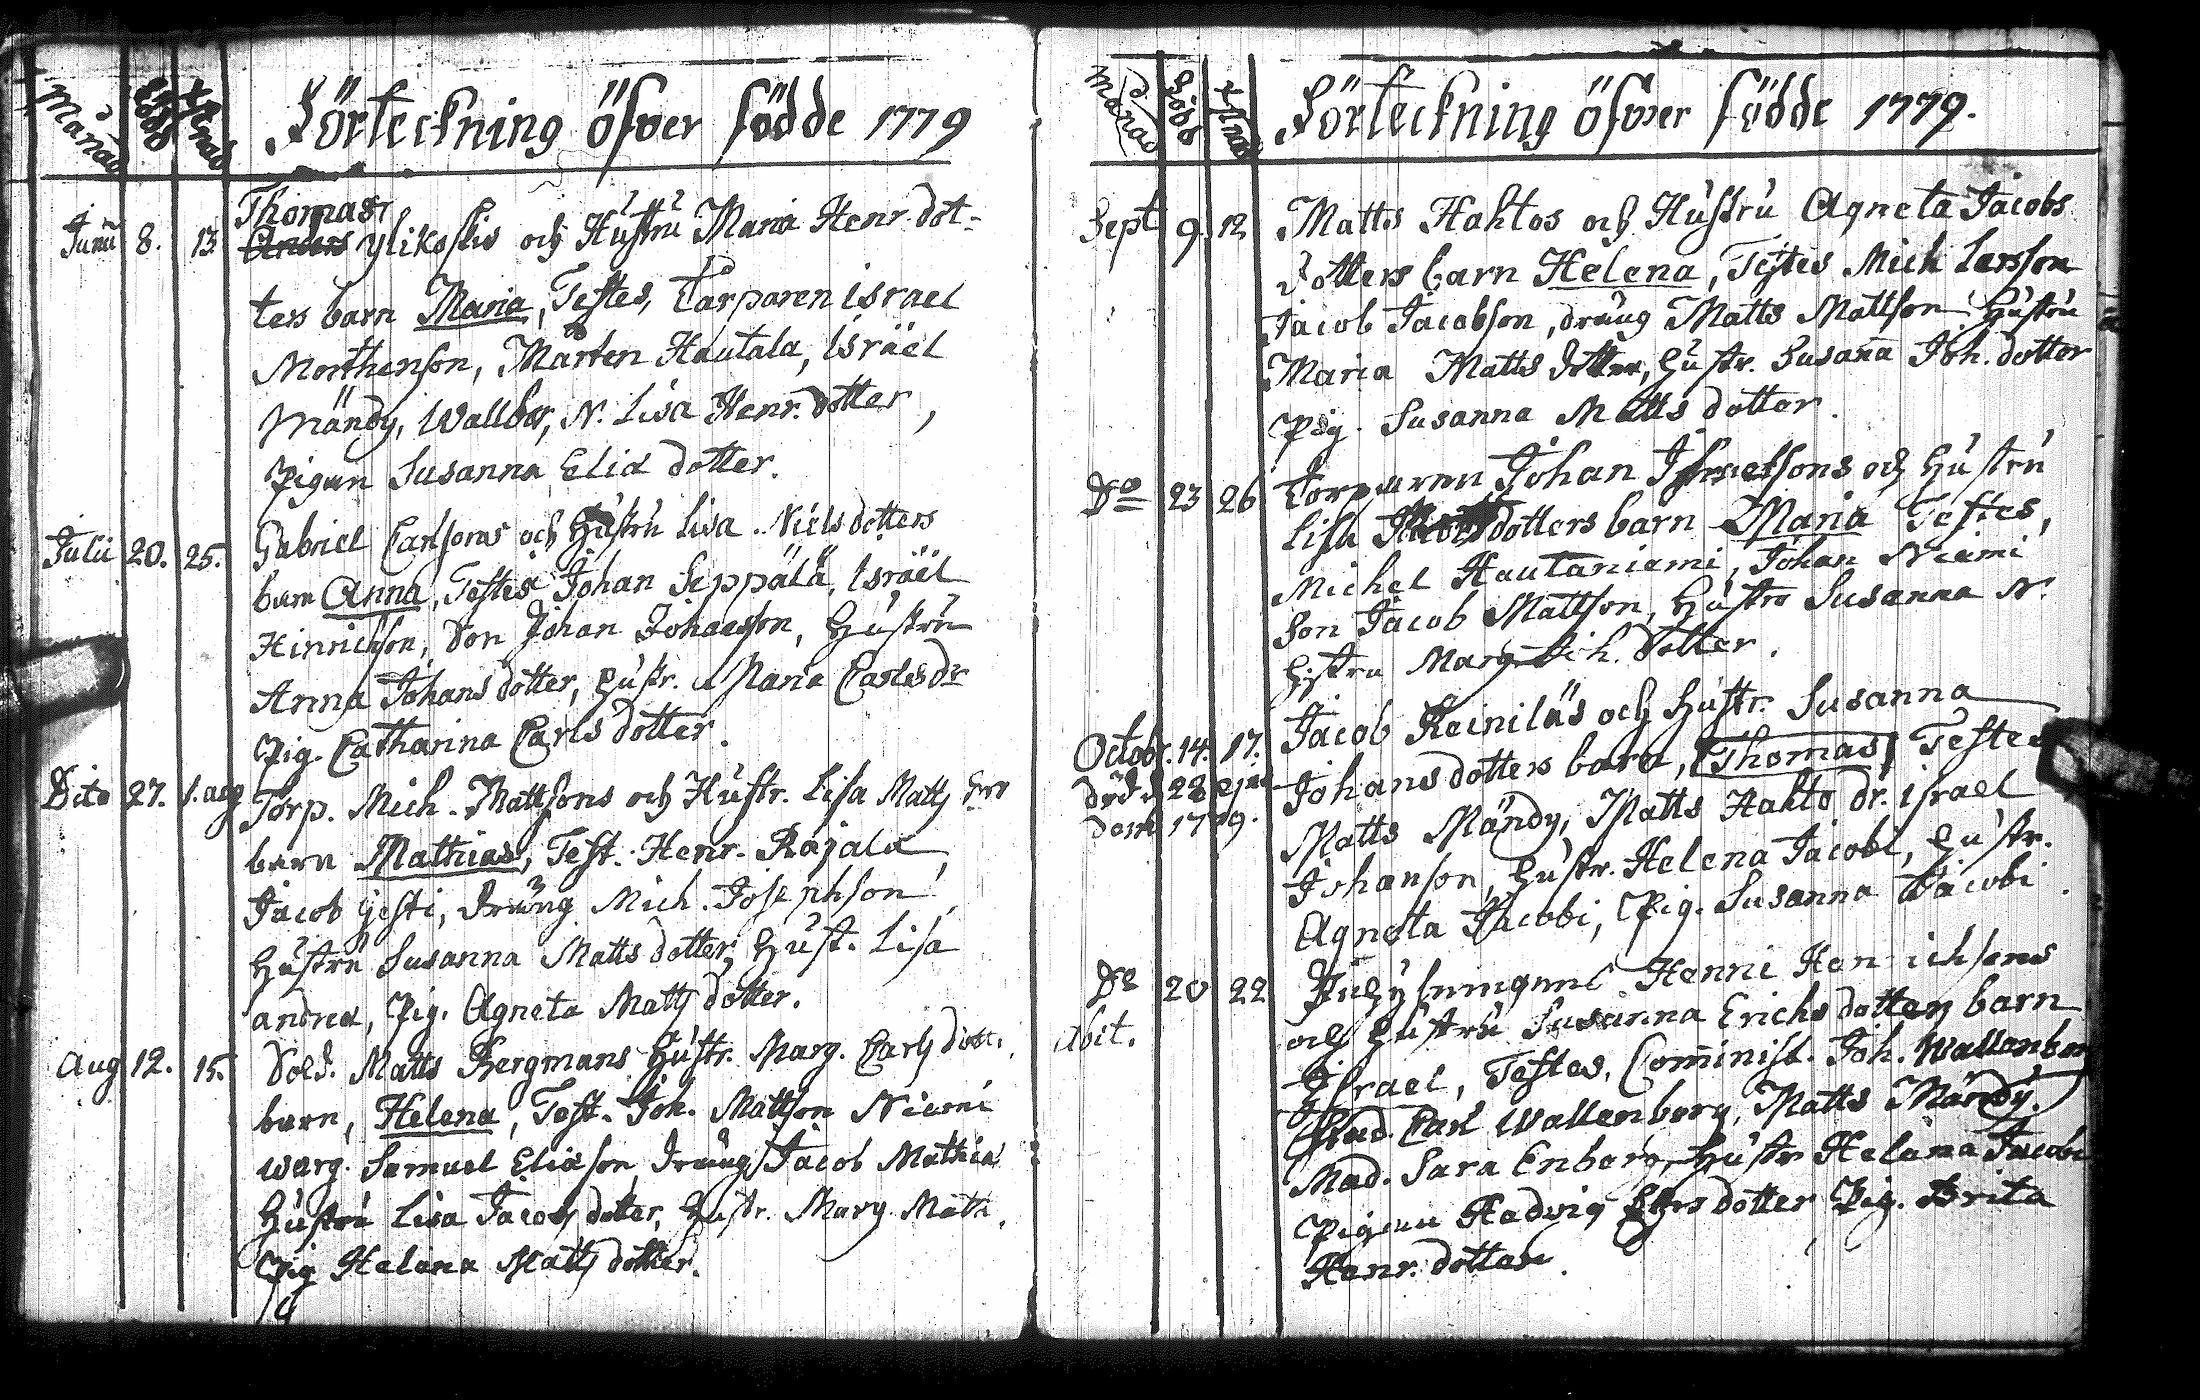 Månad Född Xstnad Förteckning öfver födde 1779
Thomas
Junii 8. 13 Anders Ylikoskis och Hustru Maria Henr. dot-
ters barn Maria, Testes, Torparen Israel
Morthenson, Mårten Hautala, Israël
Mändy, Wallbor, N. Lisa Henr. dotter,
Pigan Susanna Eliæ dotter.
Julii 20. 25. Gabriel Carlsons och Hustru Lisa Niels dotters
barn Anna, Testes Johan Seppälä, Israël
Hinrichson, Son Johan Johansson, Hustru
Anna Johans dotter, Hustr. Maria Carlsdr
Pig. Catharina Carls dotter.
Dito 27. 1. aug Torp. Mich. Mattsons och Hustr. Lisa Matts
barn Mathias, Test. Henr. Rajala,
Jacob Gesti, Dräng Mich. Josephson,
Hustru Susanna Matts dotter, Hust. Lisa
andreæ, Pig. Agneta Matts dotter.
Aug 12. 15. Sold. Matts Bergmans Hustr. Marg. Carls dott.
barn, Helena, Test. Joh. Mattson Niemi
warg. Samuel Eliæson dräng Jacob Mathiæ
Hustru Lisa Jacobs dotter, Hustr. Marg. Math.
Pig Helena Matts dotter.
Månad Född Xstnad Förteckning öfver födde 1779.
Sept 9. 12 Matts Hahtos och Hustru Agneta Jacobs
Dotters barn Helena, Testes Mich Larsson
Jacob Jacobson, dräng Matts Mattson Hustru
Maria Matts dotter, Hustr. Susanna Joh. dotter
Pig. Susanna Matts dotter.
Do 23 26 Torparen Johan Israelsons och Hustru
Lisa dotters barn Maria Testes,
Michel Hautaniemi, Johan Niemi
Son Jacob Mattson, Hustru Susanna N.
Hustru Marg. dotter.
Jacob Reiniläs och Hustr. Susanna
Octobr. 14. 17. Johans dotters barn, Thomas, Testes
död d 28 ejus Matts Mändy, Matts Hahto dr. Israel
dem 1779. Johanson, Hustr. Helena Jacobi, Hustr.
Agneta Jacobi, Pig. Susanna Jacobi.
Do 20 22 Henric Henrichsons
abit. och Hustru Susanna Erichs dotters barn
Israel, Testes, Comminist. Joh. Wallenberg
Stud. Carl Wallenberg, Matts Mändy.
Mad. Sara Enberg, Hustr Helena Jacobi
Pigan Hedvig dotter Pig. Brita
Henr. dotter.